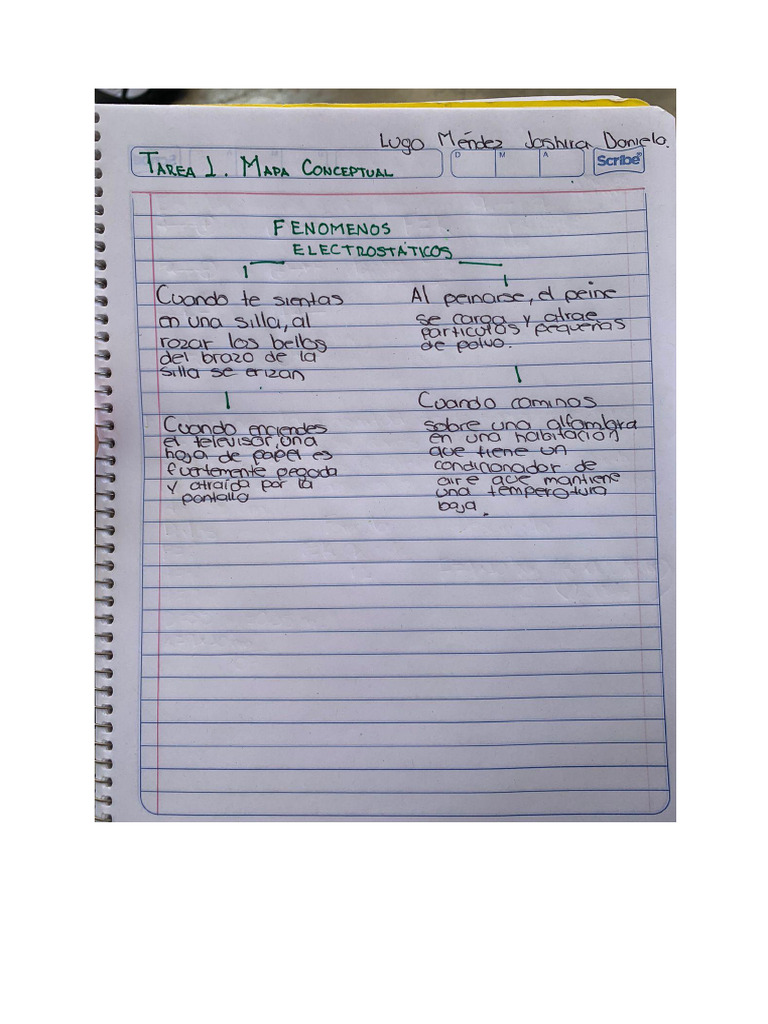 Lugo Méndez Joshira Daniela.
TAREA 1. MAPA CONCEPTUAL
D M A
Scribe
FENOMENOS
ELECTROSTÁTICOS
Cuando te sientas
en una silla, al
rozar los bellos
del brazo de la
silla se erizan
Al peinarse, el peine
se carga y atrae
particulas pequeñas
de polvo.
Cuando enciendes
el televisor, una
hoja de papel es
fuertemente pegada
y atraída por la
pantalla
Cuando caminas
sobre una alfambra
en una habitacion
que tiene un
condicionador de
aire que mantiene
una temperatura
baja.